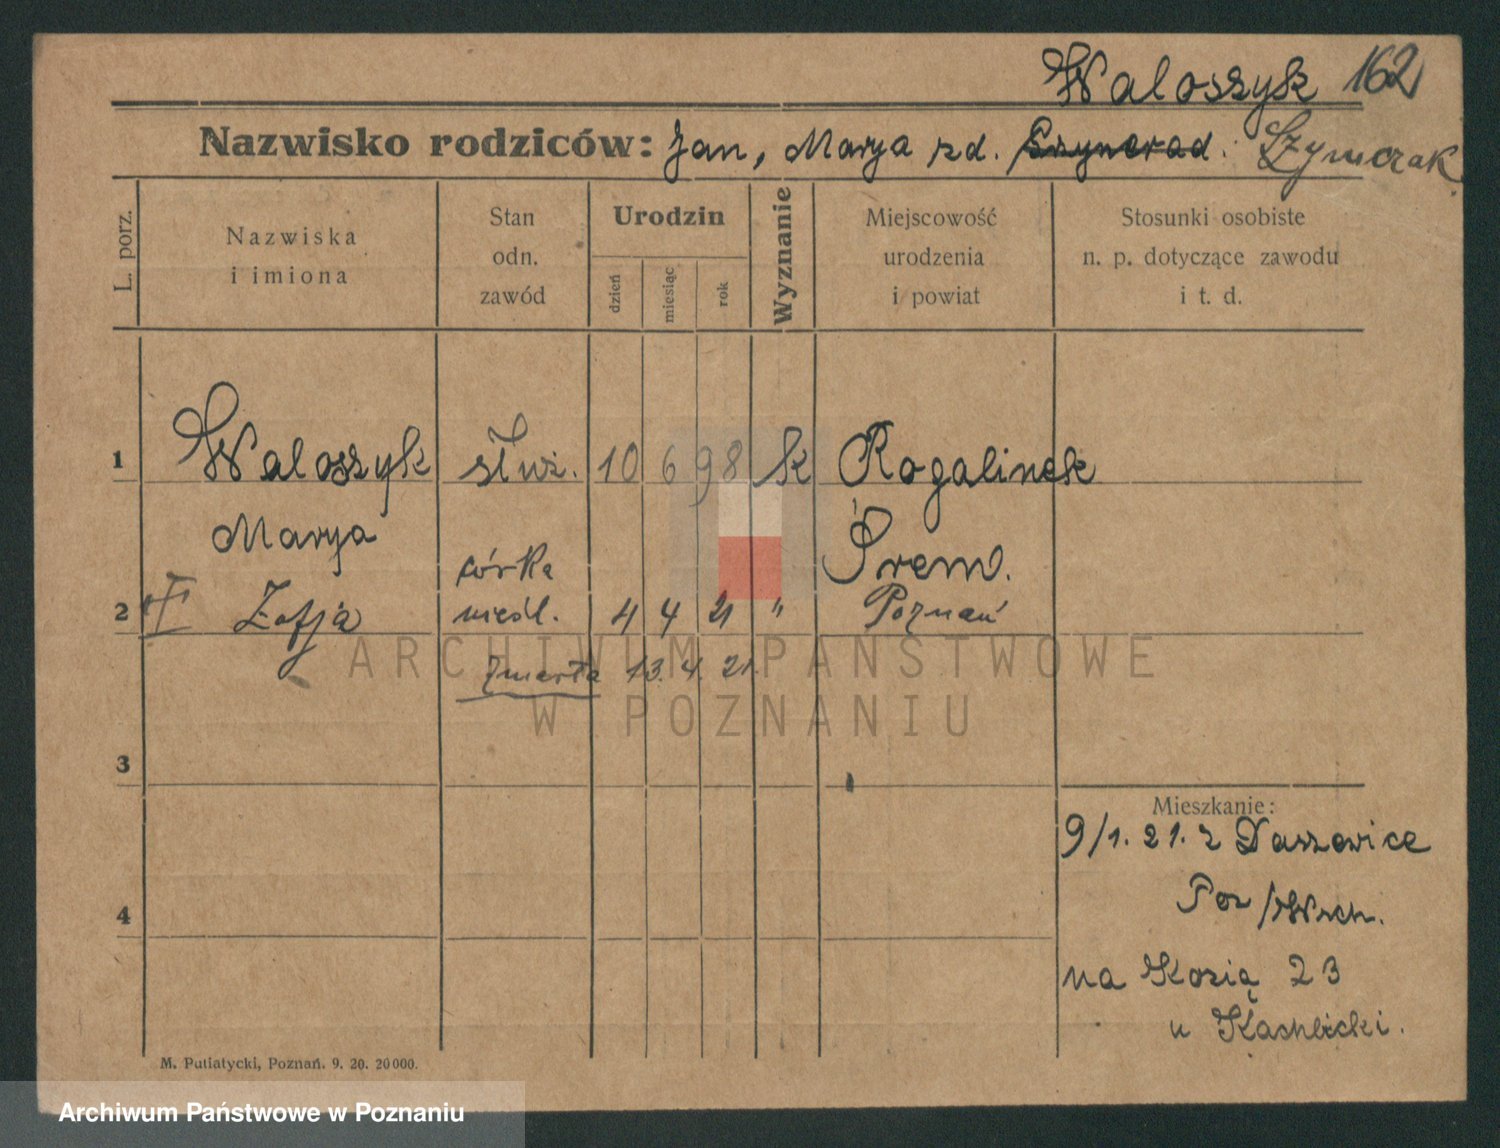 Waloszyk 162
Nazwisko rodziców: Jan, Marya zd. Szymczak
L. porz.
Nazwiska
i imiona
Stan
odn.
zawód
Urodzin
dzień
miesiąc
rok
Wyznanie
Miejscowość
urodzenia
i powiat
Stosunki osobiste
n. p. dotyczące zawodu
i t. d.
1 Waloszyk służ. 10 6 98 k Rogalinek
Marya Śrem.
córka
2 Zofja nieśl. 4 4 21 " Poznań
zmarła 13. 4. 21.
3
4
Mieszkanie:
9/1. 21. z Daszewice
Poz/Wsch.
na Kozią 23
u Kachlicki.
M. Putiatycki, Poznań. 9. 20. 20000.
ARCHIWUM PAŃSTWOWE
W POZNANIU
Archiwum Państwowe w Poznaniu